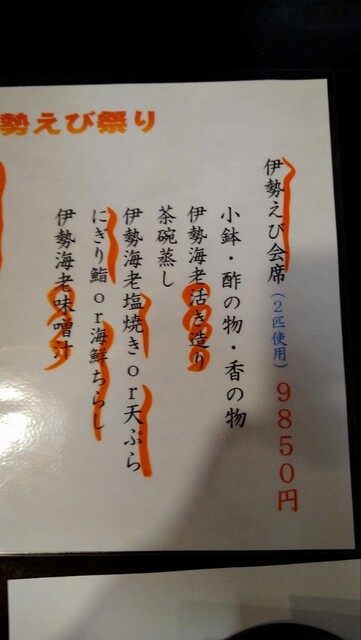 勢えび祭り
伊勢えび会席(2匹使用)9850円
小鉢・酢の物・香の物
伊勢海老活き造り
茶碗蒸し
伊勢海老塩焼きor天ぷら
にぎり鮨or海鮮ちらし
伊勢海老味噌汁